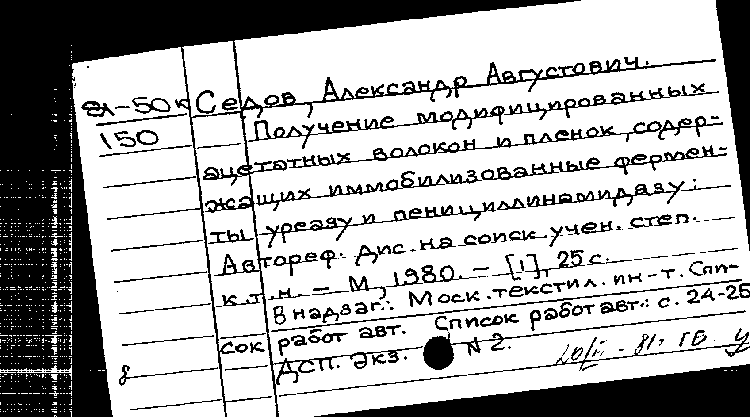 Седов, Александр Августович.
150
Получение модифицированных
ацетатных волокон и пленок, содер-
жащих иммобилизованные фермен-
ты уреазу и пенициллинамидазу:
Автореф. дис. на соиск. учен. степ.
к.т.н. - М, 1980. - [1], 25 с.
В надзаг.: Моск. текстил. ин-т. Спи-
сок работ авт. Список работ авт.: с. 24-25
ДСП. Экз. N 2.
8